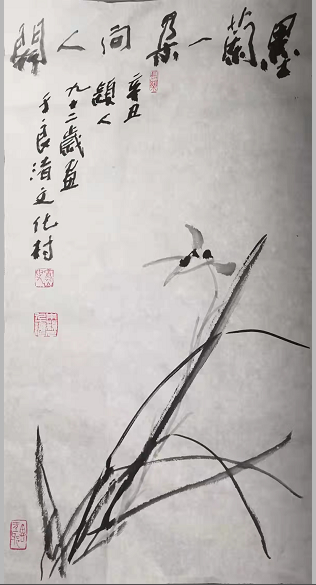 墨蘭一朵向人開
辛丑
頴人
九十二歲畫
于良渚文化村